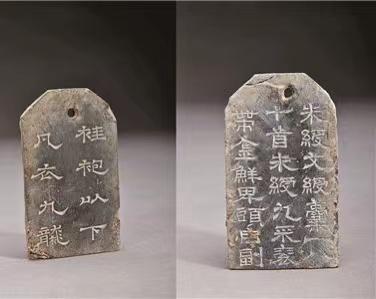 袿袍以下
凡衣九襲
朱綬文綬囊八
十首朱綬九采袞
帶金鮮卑頭自副